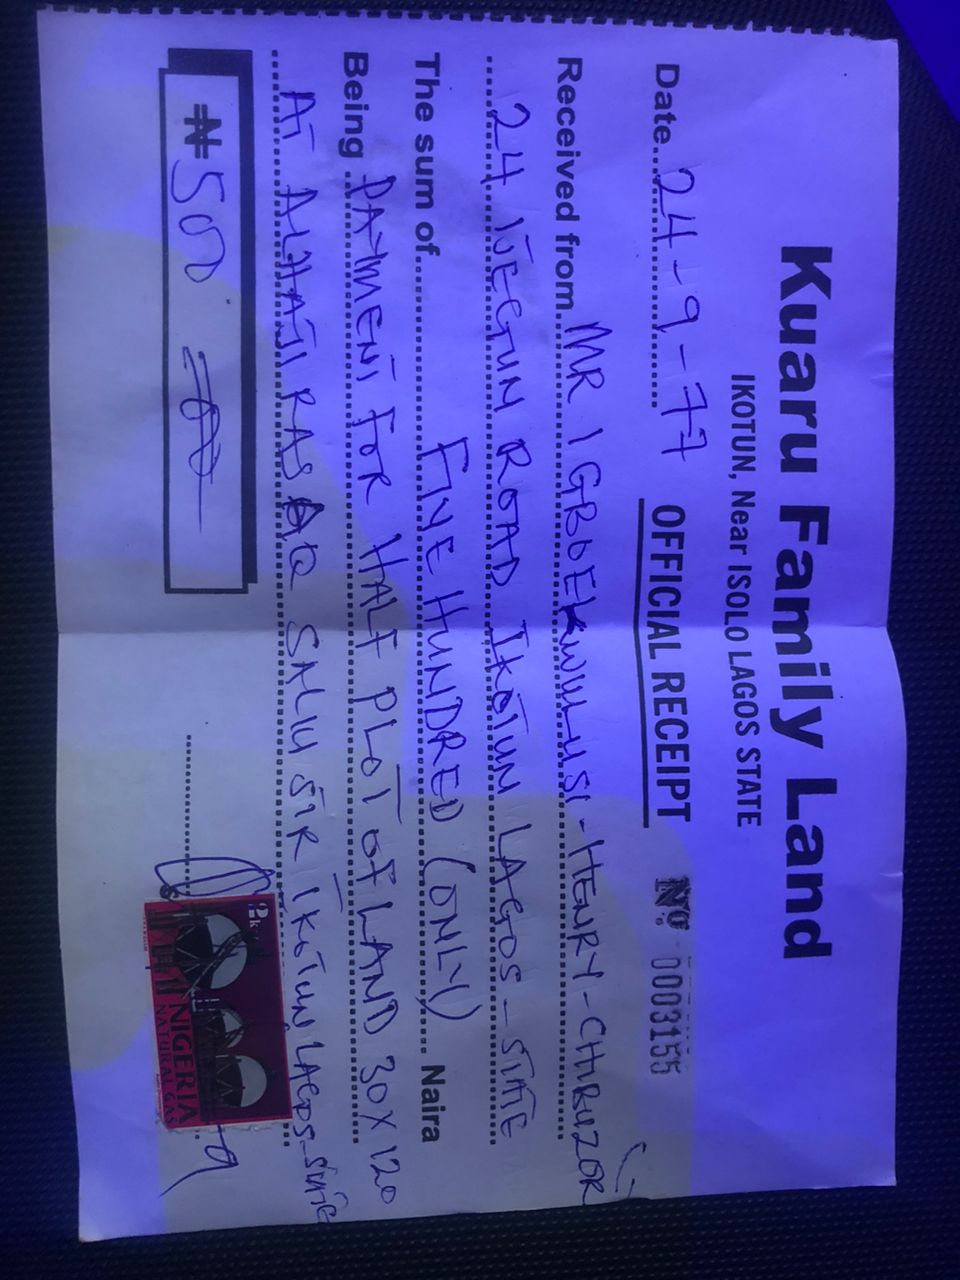 Kuaru Family Land
IKOTUN, Near ISOLO LAGOS STATE
OFFICIAL RECEIPT
Nº 0003155
Date 24-9-77
Received from MR IGBOEKWULUSI-HENRY-CHIBUZOR
24 IJEGUN ROAD IKOTUN LAGOS-STATE
The sum of FIVE HUNDRED (ONLY) Naira
Being PAYMENT FOR HALF PLOT OF LAND 30X120
AT ALHAJI RASAQ SALIU STR IKOTUN LAGOS-STATE
₦ 500
2k
NIGERIA
NATURAL GAS